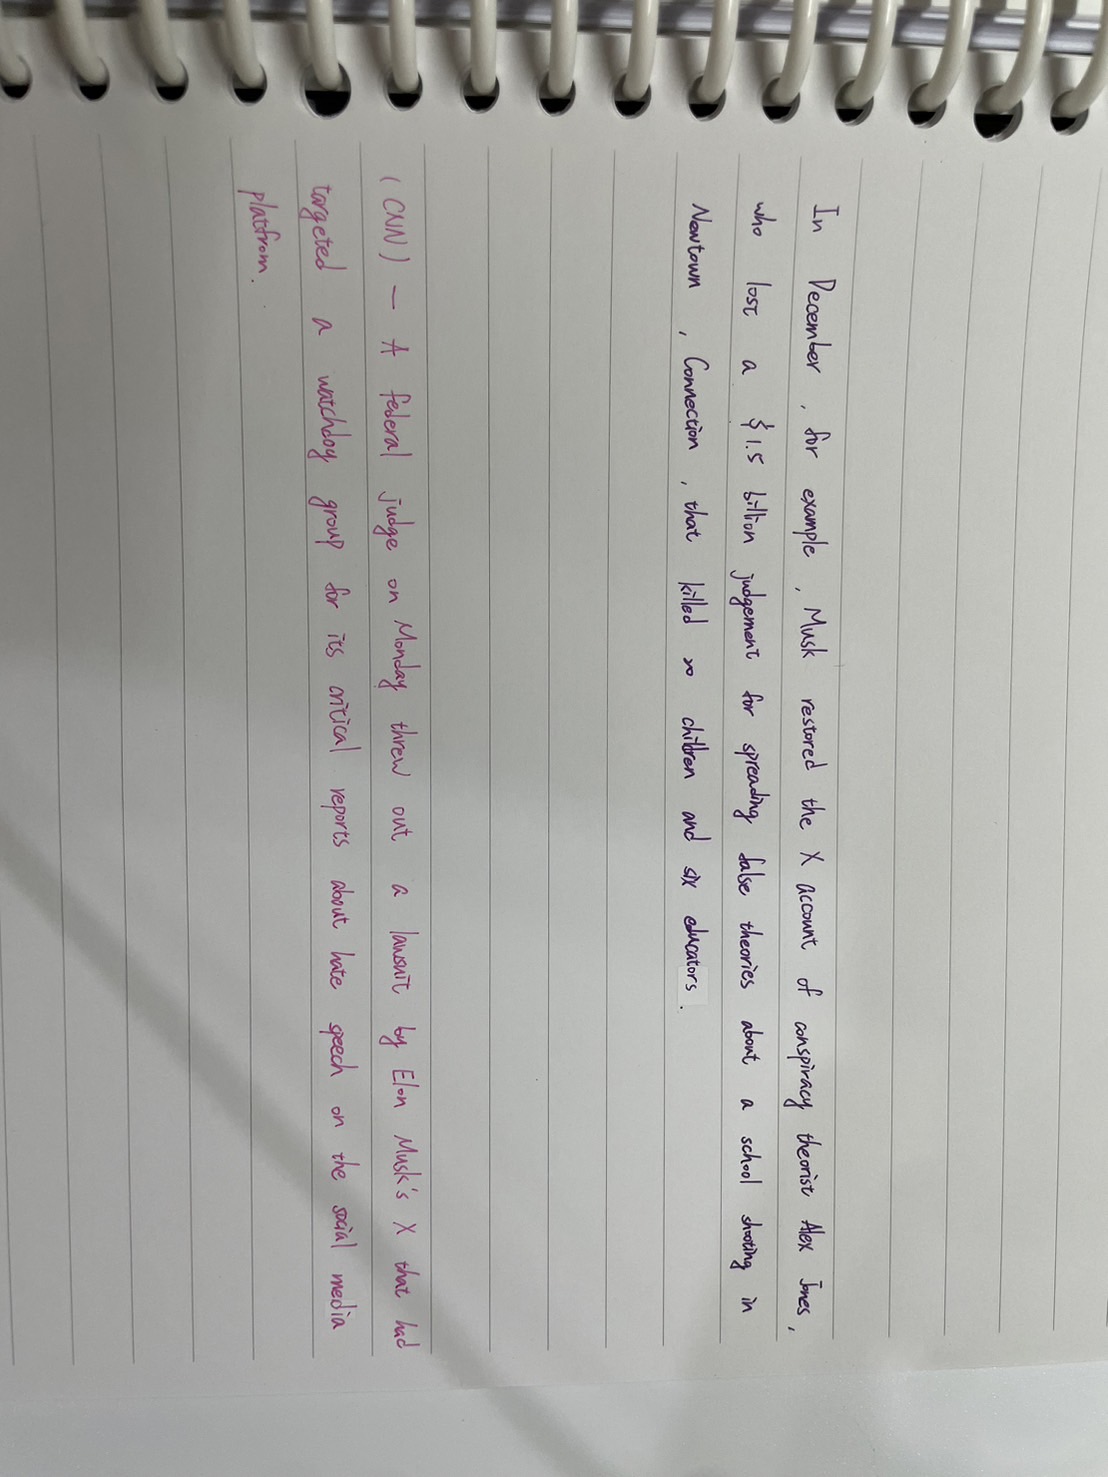 In December, for example, Musk restored the X account of conspiracy theorist Alex Jones,
who lost a $1.5 billion judgement for spreading false theories about a school shooting in
Newtown, Connection, that killed 20 children and six educators.
(CNN) — A federal judge on Monday threw out a lawsuit by Elon Musk's X that had
targeted a watchdog group for its critical reports about hate speech on the social media
platfrom.